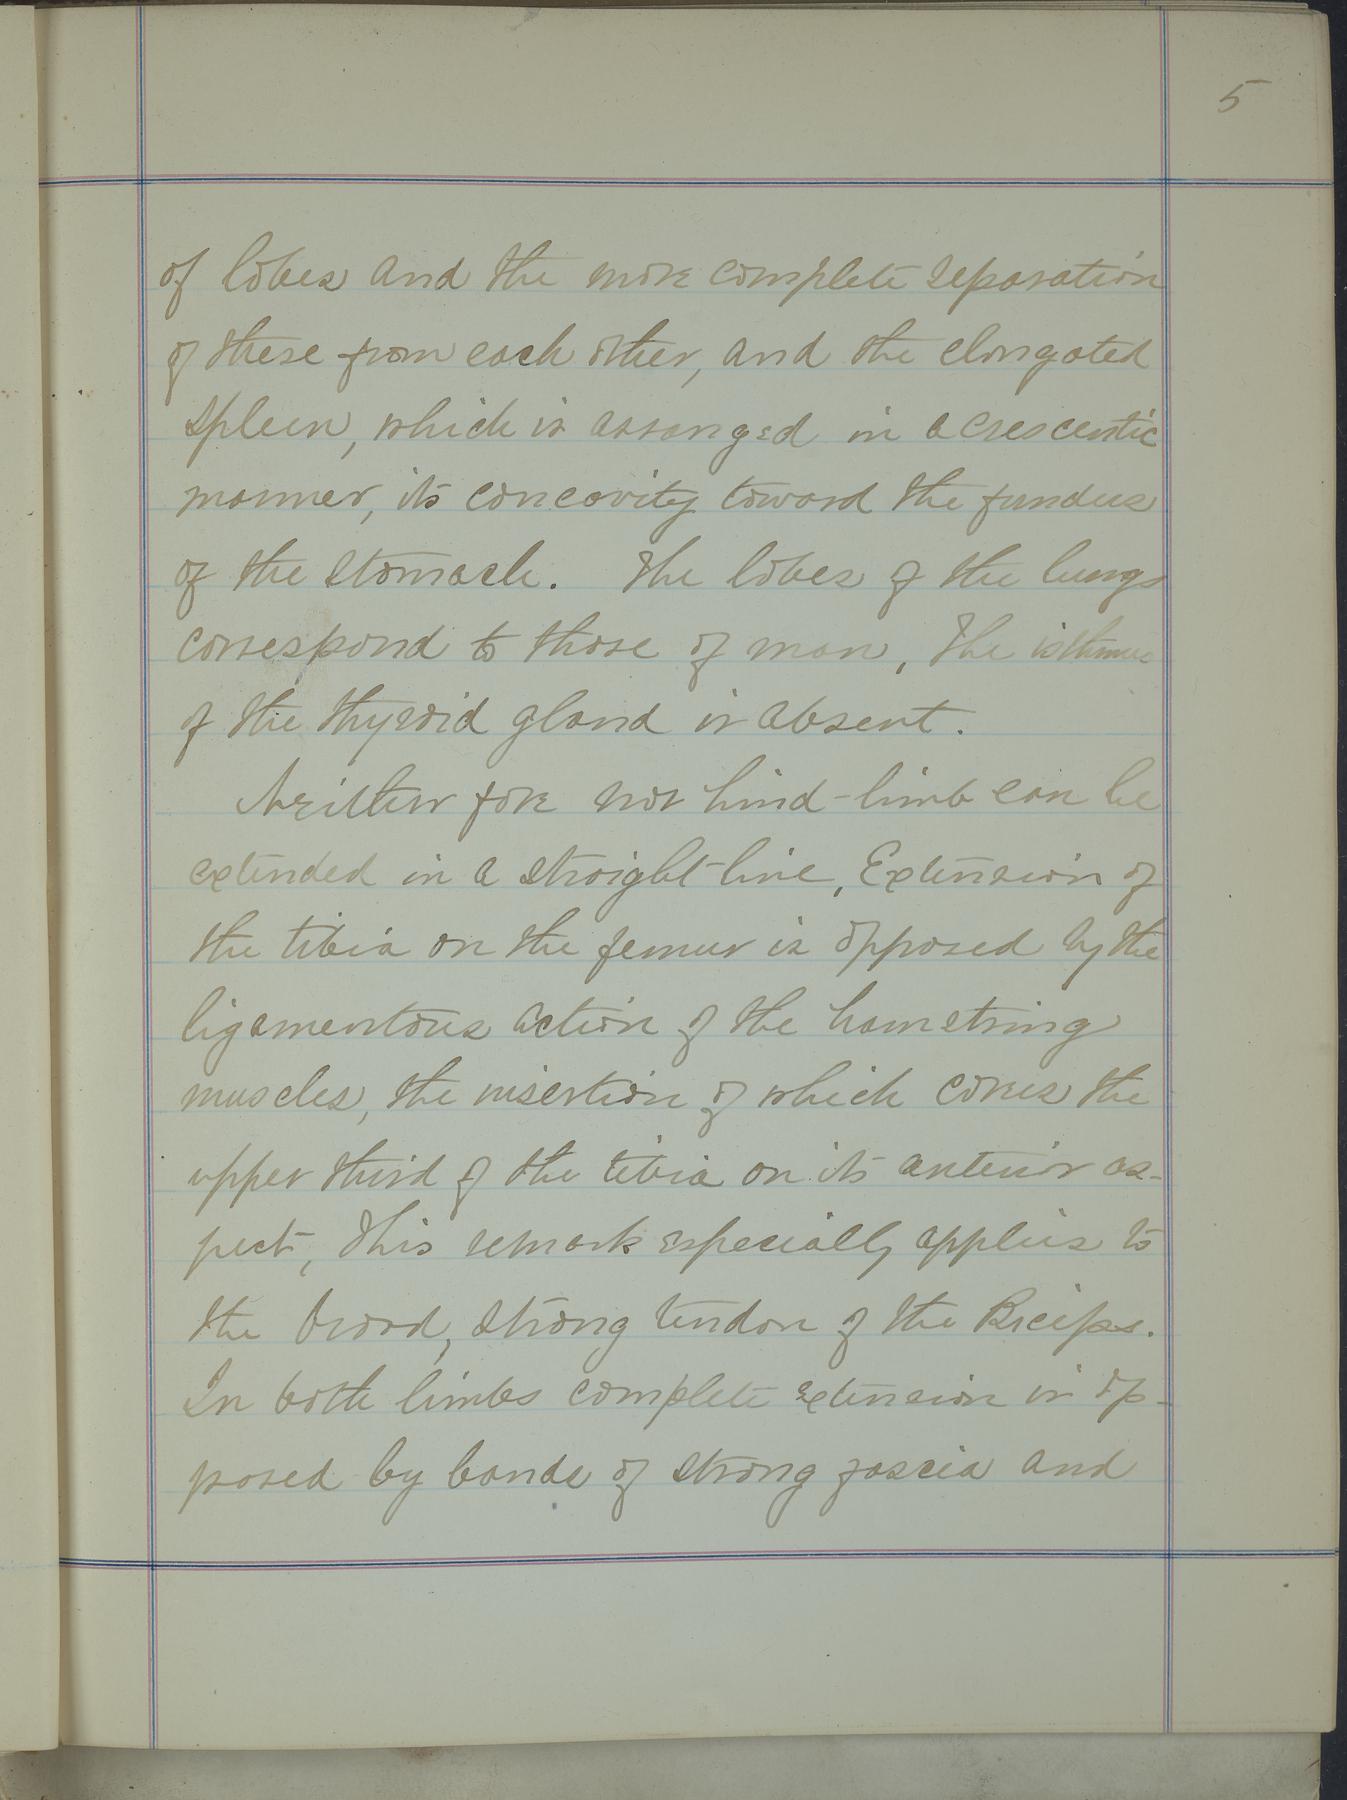 5
of lobes and the more complete separation
of these from each other, and the elongated
spleen, which is arranged in a crescentic
manner, its concavity toward the fundus
of the stomach. The lobes of the lungs
correspond to those of man, The isthmus
of the thyroid gland is absent.
Neither fore nor hind-limb can be
extended in a straight-line, Extension of
the tibia on the femur is opposed by the
ligamentous action of the hamstring
muscles, the insertion of which covers the
upper third of the tibia on its anterior as-
pect, this remark especially applies to
the broad, strong tendon of the Biceps.
In both limbs complete extension is op-
posed by bands of strong fascia and